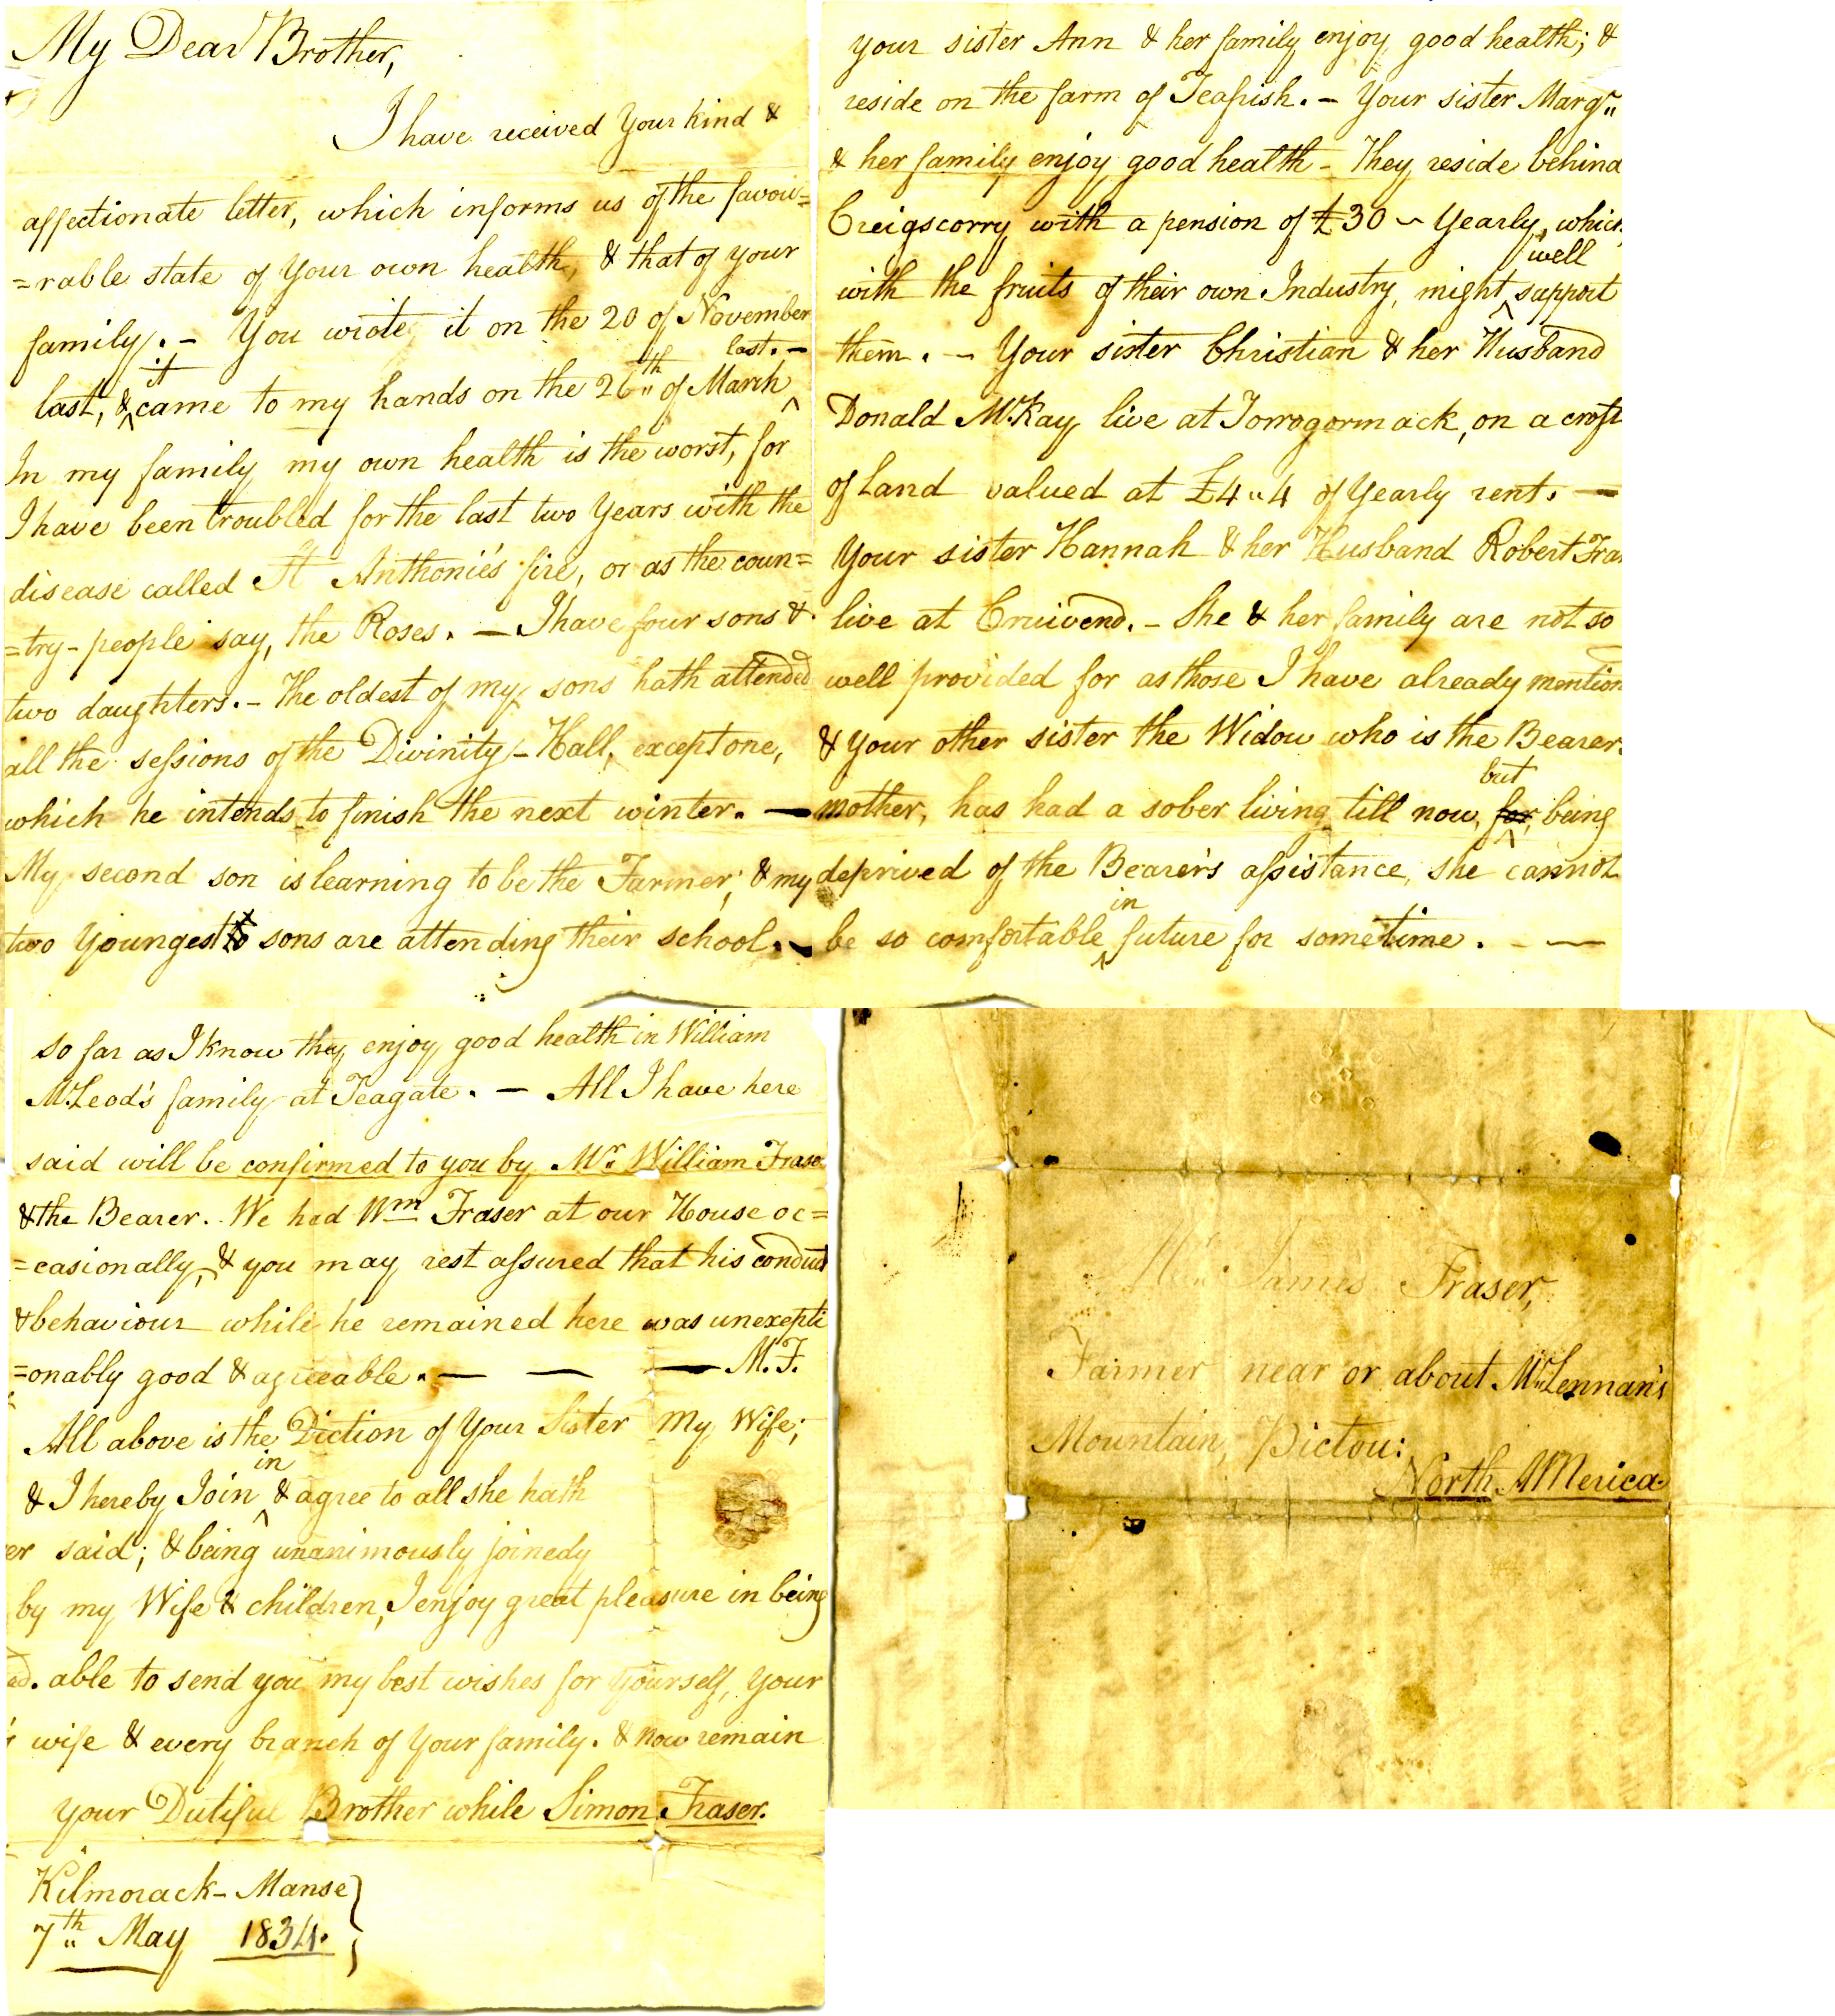 My Dear Brother,
I have received Your kind &
affectionate letter, which informs us of the favou=
=rable state of Your own health, & that of your
family. – You wrote it on the 20 of November
last, & it came to my hands on the 26th of March last. –
In my family my own health is the worst, for
I have been troubled for the last two Years with the
disease called St Anthonie's fire, or as the coun=
=try-people say, the Roses. – I have four sons &
two daughters. – The oldest of my sons hath attended
all the sessions of the Divinity-Hall, except one,
which he intends to finish the next winter. –
My second son is learning to be the Farmer; & my
two Youngest sons are attending their school. –
your sister Ann & her family enjoy good health; &
reside on the farm of Teafrish. – Your sister Margt
& her family enjoy good health – They reside behind
Creigscorry with a pension of £30 ~ Yearly, which
with the fruits of their own Industry, might well support
them. – Your sister Christian & her Husband
Donald McKay live at Torrogormack, on a croft
of Land valued at £4"4 of Yearly rent. –
Your sister Hannah & her Husband Robert Fra
live at Cruivend. – She & her family are not so
well provided for as those I have already mention
& Your other sister the Widow who is the Bearer
mother, has had a sober living till now, for but being
deprived of the Bearer's assistance, she cannot
be so comfortable in future for sometime. – –
so far as I know they enjoy good health in William
McLeod's family at Teagate. – All I have here
said will be confirmed to you by Mr. William Frase
& the Bearer. We had Wm Fraser at our House oc=
=casionally, & you may rest assured that his conduct
& behaviour while he remained here was unexcepti
=onably good & agreeable. – – – M.F.
All above is the Diction of Your Sister My Wife;
& I hereby Join in & agree to all she hath
er said; & being unanimously joined
by my Wife & children, I enjoy great pleasure in being
ed. able to send you my best wishes for Yourself, Your
wife & every branch of Your family. & now remain
your Dutiful Brother while Simon Fraser.
Kilmorack-Manse
7th May 1834.
Mr. James Fraser,
Farmer near or about McLennan's
Mountain, Pictou:
North AMerica